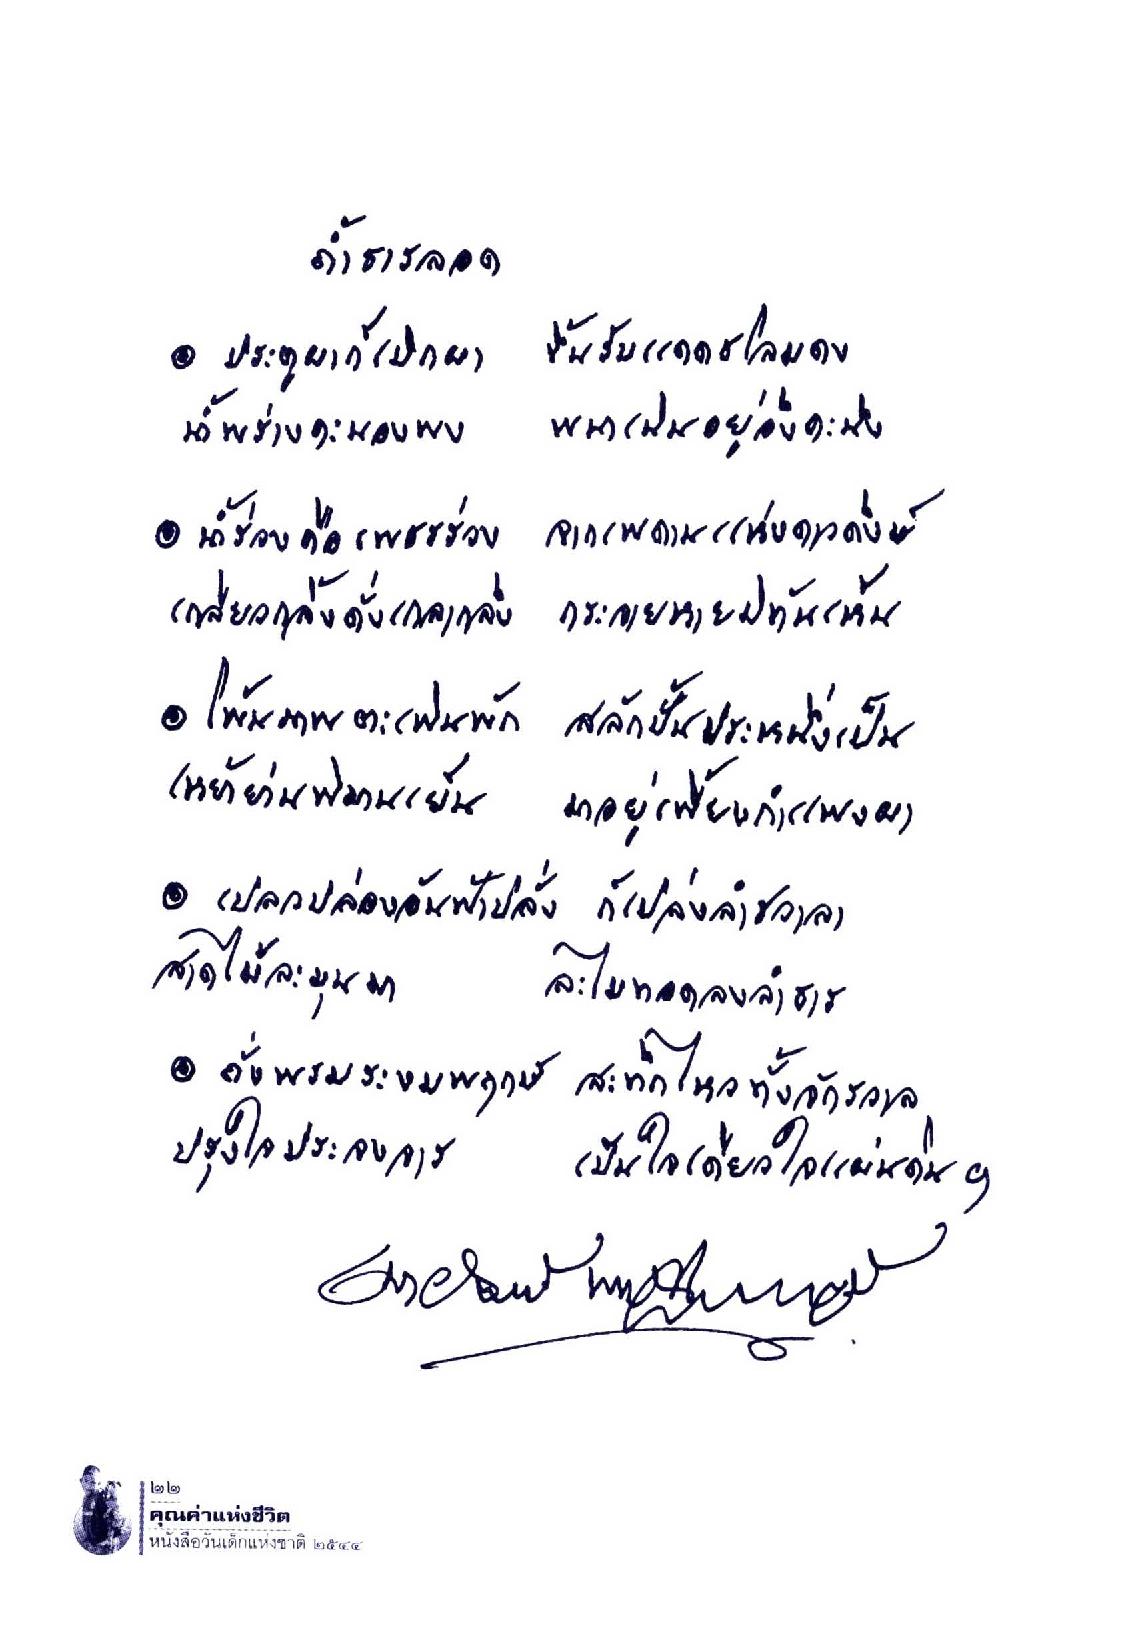 ถ้ำธารลอด
๏ ประตูผาก็เปิกผา ขึ้นรับแดดชโลมดง
น้ำพร่างคะนองพง พนาเป็นอยู่อึงคะนึง
๏ น้ำร่วงคือเพชรร่วง จากเพดานแห่งดาวดึงษ์
เกลียวกลิ้งดั่งเกลากลึง กระจายหายมิทันเห็น
๏ โพ้นภาพตะเพิ่นพัก สลักปั้นประหนึ่งเป็น
เหย้าย่านพิมานเย็น มาอยู่เพี้ยงกำแพงผา
๏ เปลวปล่องอันฟ้าปลั่ง ก็เปล่งลำชวาลา
สาดไม้ละมุนมา ละไมทอดลงลำธาร
๏ ดั่งพรมระงมพฤกษ์ สะทึกไหวทั้งจักรวาล
ปรุงใจประจงจาร เป็นใจเดียวใจแผ่นดิน ฯ
เนาวรัตน์ พงษ์ไพบูลย์
๒๒
คุณค่าแห่งชีวิต
หนังสือวันเด็กแห่งชาติ ๒๕๔๔